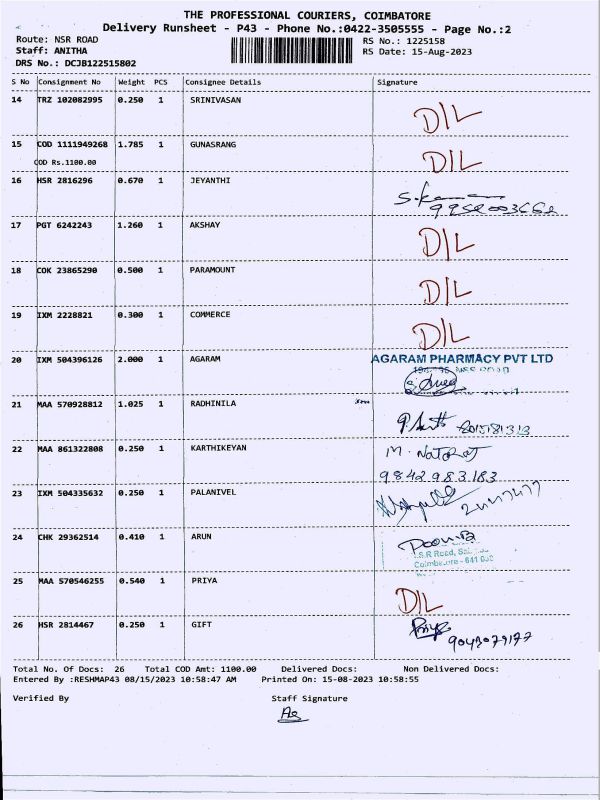 THE PROFESSIONAL COURIERS, COIMBATORE
Delivery Runsheet - P43 - Phone No.:0422-3505555 - Page No.:2
Route: NSR ROAD RS No.: 1225158
Staff: ANITHA RS Date: 15-Aug-2023
DRS No.: DCJB122515802
S No Consignment No Weight PCS Consignee Details Signature
14 TRZ 102082995 0.250 1 SRINIVASAN D/L
15 COD 1111949268 1.785 1 GUNASRANG D/L
COD Rs.1100.00
16 HSR 2816296 0.670 1 JEYANTHI
17 PGT 6242243 1.260 1 AKSHAY D/L
18 COK 23865290 0.500 1 PARAMOUNT D/L
19 IXM 2228821 0.300 1 COMMERCE D/L
20 IXM 504396126 2.000 1 AGARAM AGARAM PHARMACY PVT LTD
21 MAA 570928812 1.025 1 RADHINILA
22 MAA 861322808 0.250 1 KARTHIKEYAN M. Natarat
9842983183
23 IXM 504335632 0.250 1 PALANIVEL
24 CHK 29362514 0.410 1 ARUN
S.R Road, Sai
Coimbatore - 641
25 MAA 570546255 0.540 1 PRIYA D/L
26 HSR 2814467 0.250 1 GIFT Priya
9043079177
Total No. Of Docs: 26 Total COD Amt: 1100.00 Delivered Docs: Non Delivered Docs:
Entered By :RESHMAP43 08/15/2023 10:58:47 AM Printed On: 15-08-2023 10:58:55
Verified By Staff Signature